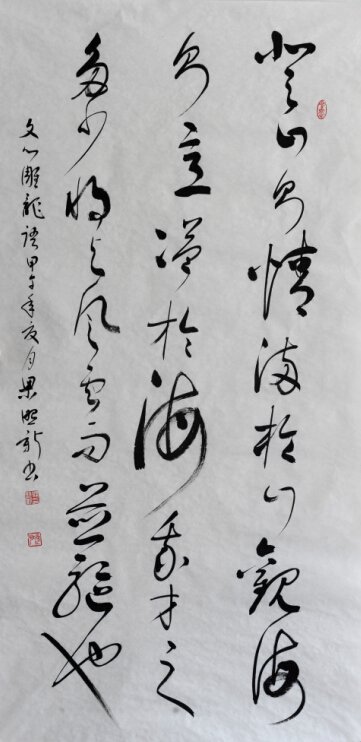 登山則情滿於山觀海
則意溢於海我才之
多少將與風雲而並驅也
文心雕龍語甲午年夏月書